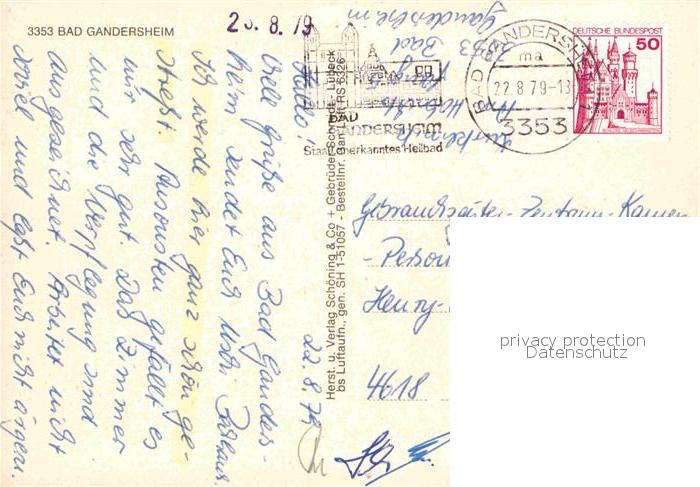 3353 BAD GANDERSHEIM
23.8.79
DEUTSCHE BUNDESPOST
50
BAD GANDERSHEIM
ma
22.8.79-13
3353
BAD
GANDERSHEIM
Staatl. anerkanntes Heilbad
3353 Bad
Gandersheim
Herst. u. Verlag Schöning & Co + Gebrüder Schmidt - Lübeck
bs Luftaufn., gen. SH 1-51057 - Bestellnr. Gan. Luft RS 6326
22.8.79
Hallo!
Viele Grüße aus Bad Ganders-
heim sendet Euch
Ich werde hier ganz schön ge-
streßt. Ansonsten gefällt es
mir sehr gut. Das Zimmer
und die Verpflegung sind
ausgezeichnet. Arbeitet nicht
soviel und laßt Euch nicht ärgern.
- Person
Henry-
4618
privacy protection
Datenschutz